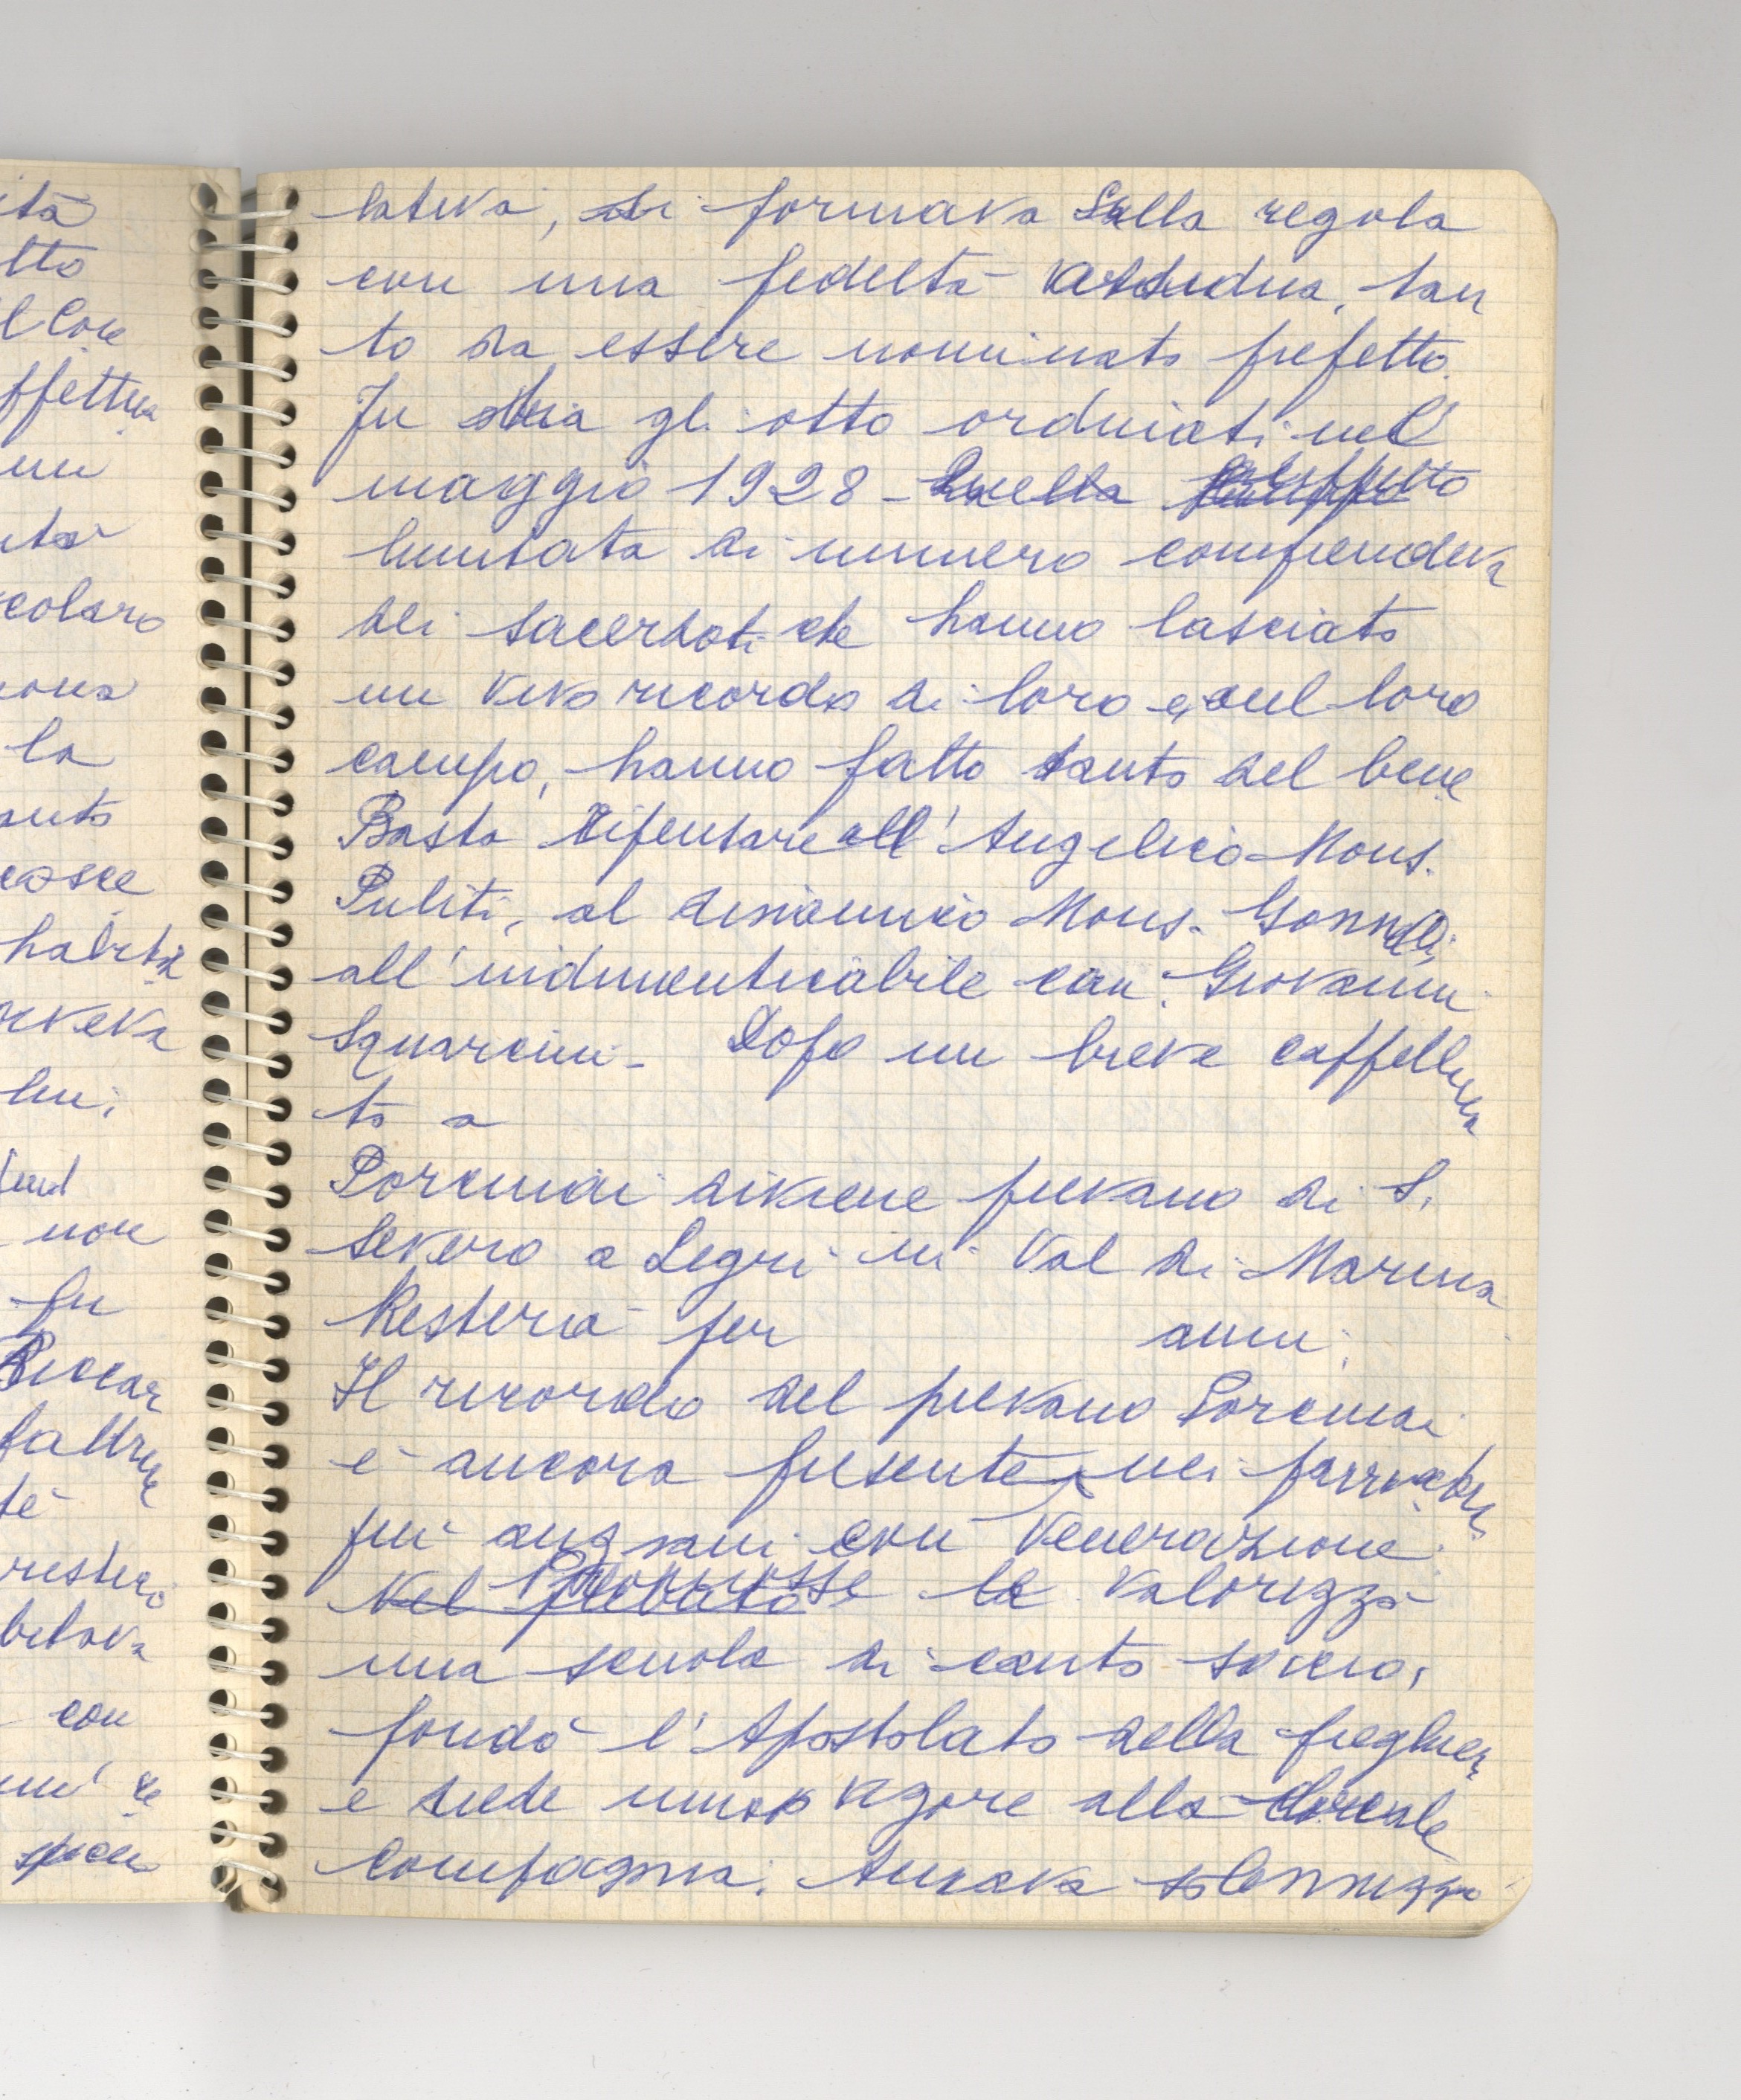 ità
tto
l Con
ffettua
un
colaro
la
anto
cosce
habita
lui,
non
fu
Riccar
resterò
bitava
con
lativa, si formava sulla regola
con una fedeltà assidua, tan
to da essere nominato prefetto.
Fu tra gli otto ordinati nel
maggio 1928 - Quella
limitata di numero comprendeva
dei sacerdoti che hanno lasciato
un vivo ricordo di loro e, nel loro
campo, hanno fatto tanto del bene
Basta ripensare all'Angelico Mons.
Puliti, al dinamico Mons. Gonnelli
all'indimenticabile can. Giovanni
Squarcini - Dopo un breve cappellana
to a
Porcinai diviene pievano di S.
Severo a Legri in Val di Marina
Resterà per anni.
Il ricordo del pievano Porcinai
è ancora presente nei parrocchiani
più anziani con venerazione.
Nel pievanato Promosse e valorizzò
una scuola di canto sacro,
fondò l'Apostolato della preghiera
e diede nuovo vigore alla locale
Compagnia. Amava solennizza